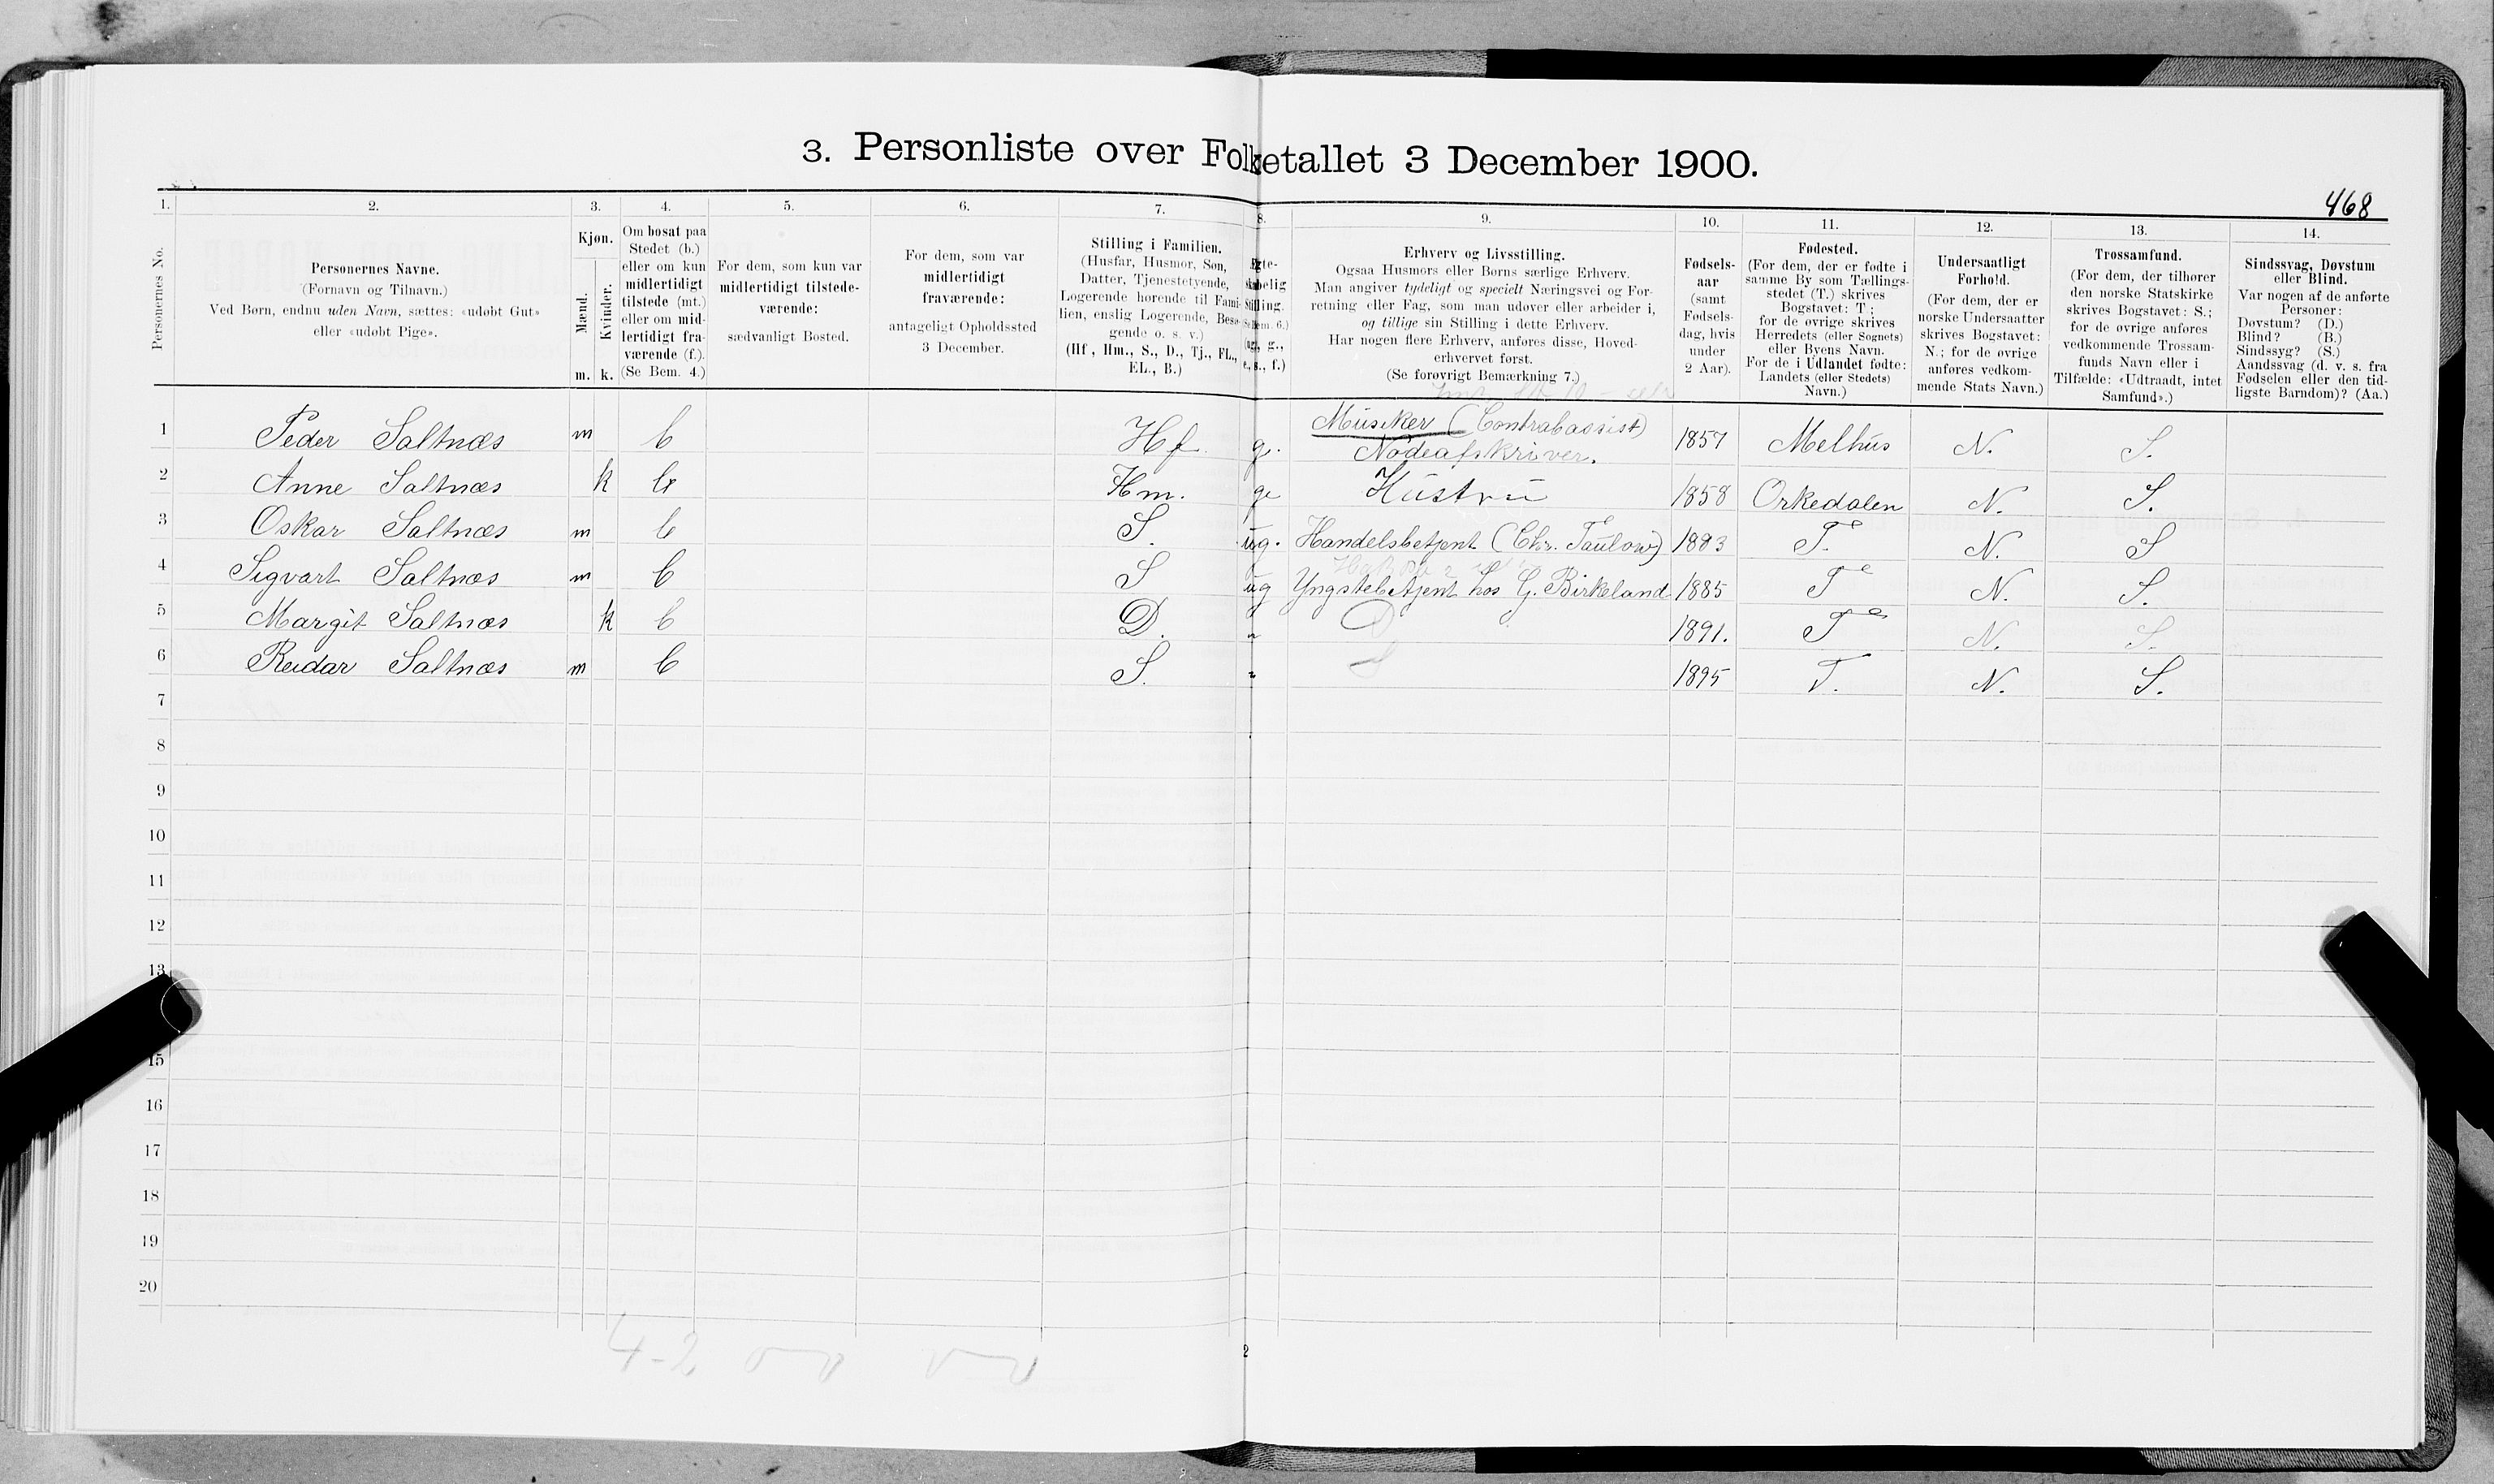 3. Personliste over Folketallet 3 December 1900.
468
1. 2. 3. 4. 5. 6. 7. 8. 9. 10. 11. 12. 13. 14.
Personernes No.
Personernes Navne.
(Fornavn og Tilnavn.)
Ved Børn, endnu uden Navn, sættes: «udøbt Gut»
eller «udøbt Pige».
Kjøn.
Mænd.
Kvinder.
m. k.
Om bosat paa
Stedet (b.)
eller om kun
midlertidigt
tilstede (mt.)
eller om mid-
lertidigt fra-
værende (f.).
(Se Bem. 4.)
For dem, som kun var
midlertidigt tilstede-
værende:
sædvanligt Bosted.
For dem, som var
midlertidigt
fraværende:
antageligt Opholdssted
3 December.
Stilling i Familien.
(Husfar, Husmor, Søn,
Datter, Tjenestetyende,
Logerende hørende til Fami-
lien, enslig Logerende, Besø-
gende o. s. v.)
(Hf., Hm., S., D., Tj., FL.,
EL., B.)
Erhverv og Livsstilling.
Ogsaa Husmors eller Børns særlige Erhverv.
Man angiver tydeligt og specielt Næringsvei og For-
retning eller Fag, som man udøver eller arbeider i,
og tillige sin Stilling i dette Erhverv.
Har nogen flere Erhverv, anføres disse, Hoved-
erhvervet først.
(Se forøvrigt Bemærkning 7.)
Fødsels-
aar
(samt
Fødsels-
dag, hvis
under
2 Aar).
Fødested.
(For dem, der er fødte i
samme By som Tællings-
stedet (T.) skrives
Bogstavet: T;
for de øvrige skrives
Herredets (eller Sognets)
eller Byens Navn.
For de i Udlandet fødte:
Landets (eller Stedets)
Navn.)
Undersaatligt
Forhold.
(For dem, der er
norske Undersaatter
skrives Bogstavet:
N.; for de øvrige
anføres vedkom-
mende Stats Navn.)
Trossamfund.
(For dem, der tilhører
den norske Statskirke
skrives Bogstavet: S.;
for de øvrige anføres
vedkommende Trossam-
funds Navn eller i
Tilfælde: «Udtraadt, intet
Samfund».)
Sindssvag, Døvstum
eller Blind.
Var nogen af de anførte
Personer:
Døvstum? (D.)
Blind? (B.)
Sindssyg? (S.)
Aandssvag (d. v. s. fra
Fødselen eller den tid-
ligste Barndom)? (Aa.)
1 Peder Saltnæs m b Hf. g. Musiker (Contrabassist) 1857 Melhus N. S.
Nodeafskriver.
2 Anne Saltnæs k b Hm. g Hustru 1858 Orkedalen N. S.
3 Oskar Saltnæs m b S. ug. Handelsbetjent (Chr. Taulow) 1883 T. N. S
4 Sigvart Saltnæs m b S ug Yngstebetjent hos G. Birkeland 1885 T N. S.
5 Margit Saltnæs k b D. " D 1891. T N. S.
6 Reidar Saltnæs m b S. " S 1895 T. N. S.
7
8
9
10
11
12
13
15
16
17
18
19
20
4-2
2